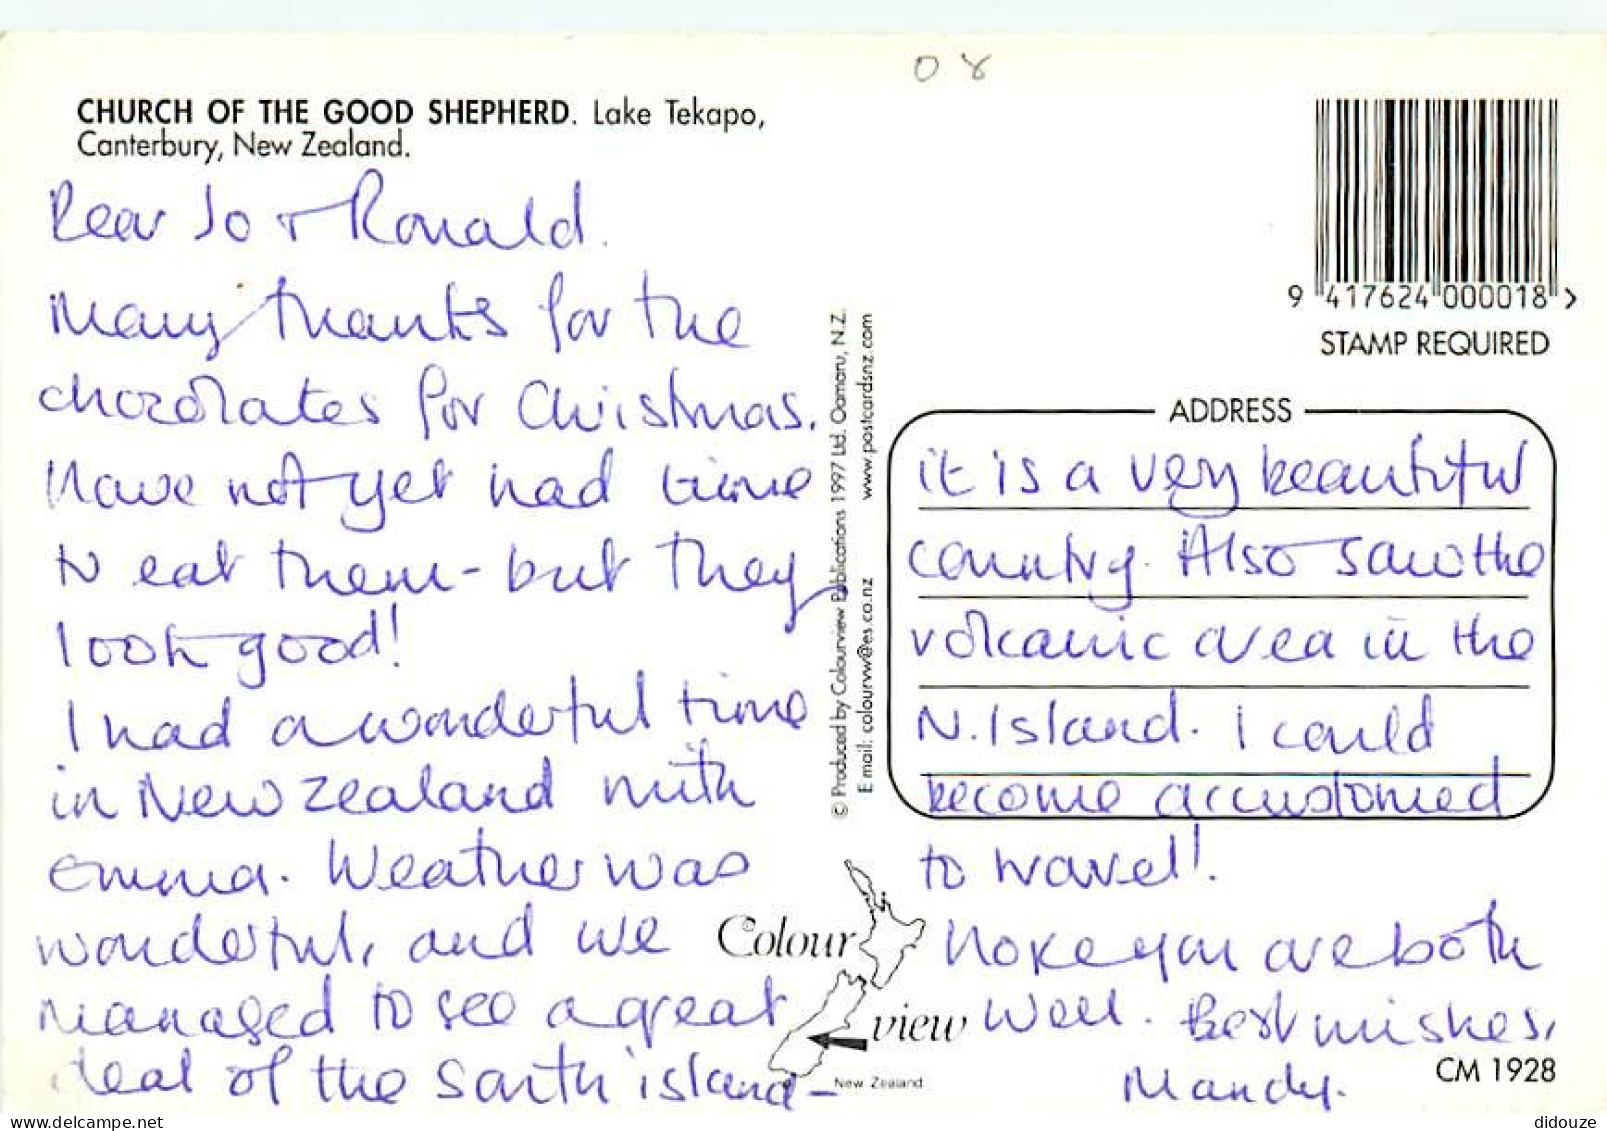 08
CHURCH OF THE GOOD SHEPHERD. Lake Tekapo,
Canterbury, New Zealand.
Dear Jo + Ronald.
Many thanks for the
chocolates for Christmas.
Have not yet had time
to eat them - but they
look good!
I had a wonderful time
in New Zealand with
Emma. Weather was
wonderful, and we
managed to see a great
deal of the South island -
© Produced by Colourview Publications 1997 Ltd. Oamaru, N.Z.
E mail: colourvw@es.co.nz www.postcardsnz.com
9 417624 000018 >
STAMP REQUIRED
ADDRESS
it is a very beautiful
country. Also saw the
volcanic area in the
N. Island. I could
become accustomed
to travel!.
Hope you are both
well. Best wishes,
Mandy.
Colour
view
New Zealand
CM 1928
didouze
www.delcampe.net